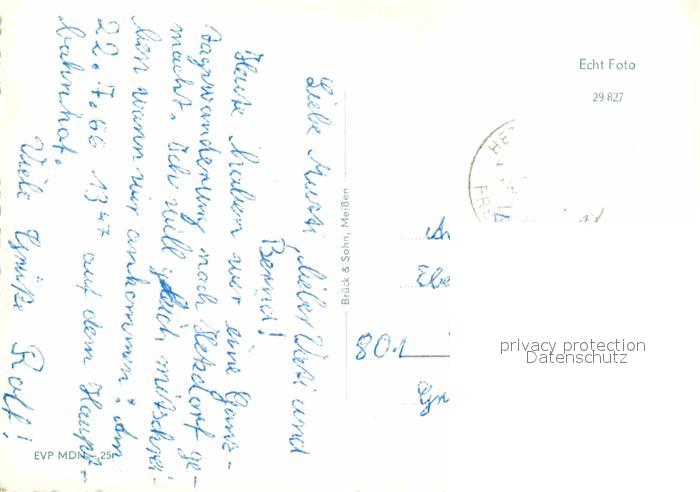 Liebe Mutti, lieber Vati und
Bernd!
Heute haben wir eine Ganz-
tagswanderung nach Hetzdorf ge-
macht. Ich will Euch mitschrei-
ben wann wir ankommen: Am
22.7.66 13⁴⁷ auf dem Haupt-
bahnhof.
Viele Grüße Rolf!
EVP MDN -,25
Brück & Sohn, Meißen
Echt Foto
29 827
801
privacy protection
Datenschutz